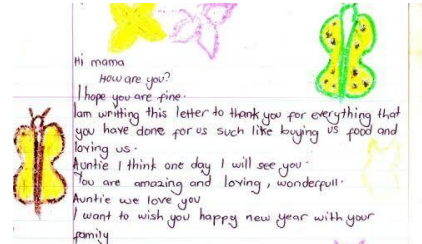 Hi mama
How are you?
I hope you are fine.
Iam writting this letter to thank you for everything that
you have done for us such like buying us food and
loving us.
Auntie I think one day I will see you.
You are amazing and loving, wonderfull.
Auntie we love you
I want to wish you happy new year with your
family